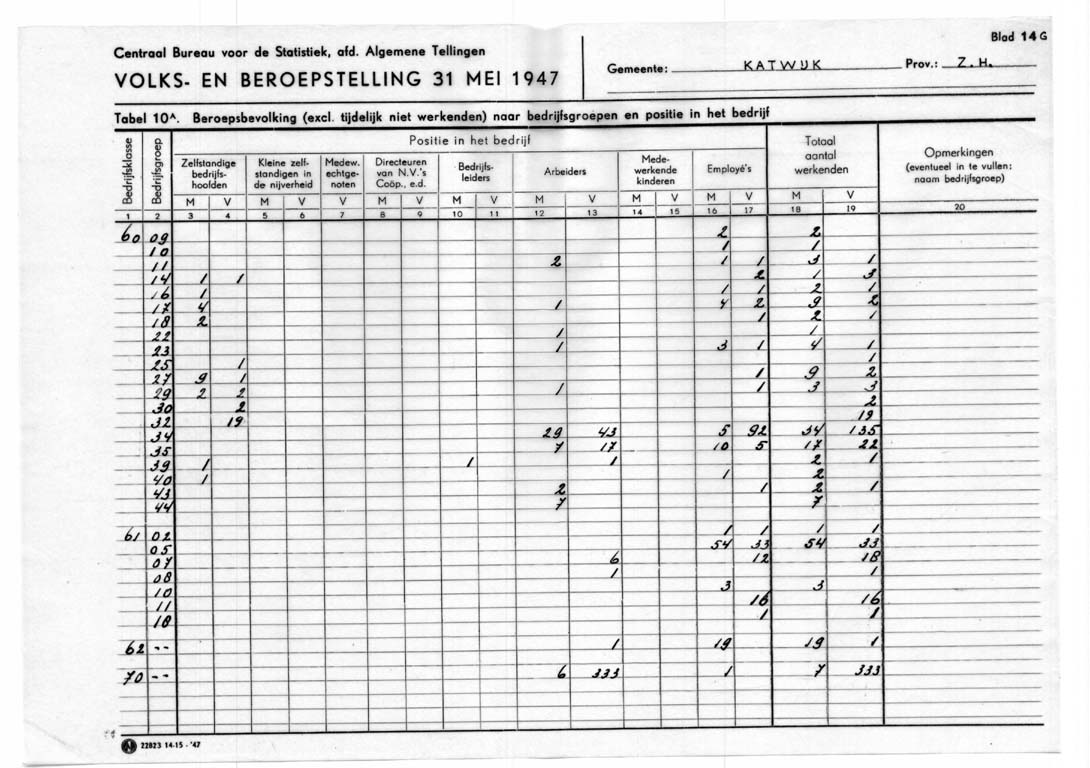 Blad 14 G
Centraal Bureau voor de Statistiek, afd. Algemene Tellingen
VOLKS- EN BEROEPSTELLING 31 MEI 1947
Gemeente: KATWIJK Prov.: Z.H.
Tabel 10ᴬ. Beroepsbevolking (excl. tijdelijk niet werkenden) naar bedrijfsgroepen en positie in het bedrijf
Bedrijfsklasse Bedrijfsgroep Positie in het bedrijf Totaal aantal werkenden Opmerkingen (eventueel in te vullen: naam bedrijfsgroep)
Zelfstandige bedrijfs-hoofden Kleine zelf-standigen in de nijverheid Medew. echtge-noten Directeuren van N.V.'s Coöp., e.d. Bedrijfs-leiders Arbeiders Mede-werkende kinderen Employé's
M V M V V M V M V M V M V M V M V
1 2 3 4 5 6 7 8 9 10 11 12 13 14 15 16 17 18 19 20
60 09 2 2
10 1 1
11 2 1 1 3 1
14 1 1 2 1 3
16 1 1 1 2 1
17 4 1 4 2 9 2
18 2 1 2 1
22 1 1
23 1 3 1 4 1
25 1 1
27 9 1 1 9 2
29 2 2 1 1 3 3
30 2 2
32 19 19
34 29 43 5 92 34 135
35 7 17 10 5 17 22
39 1 1 1 2 1
40 1 1 2
43 2 1 2 1
44 7 7
61 02 1 1 1 1
05 54 33 54 33
07 6 12 18
08 1 1
10 3 3
11 16 16
18 1 1
62 -- 1 19 19 1
70 -- 6 333 1 7 333
22823 14-15 - '47